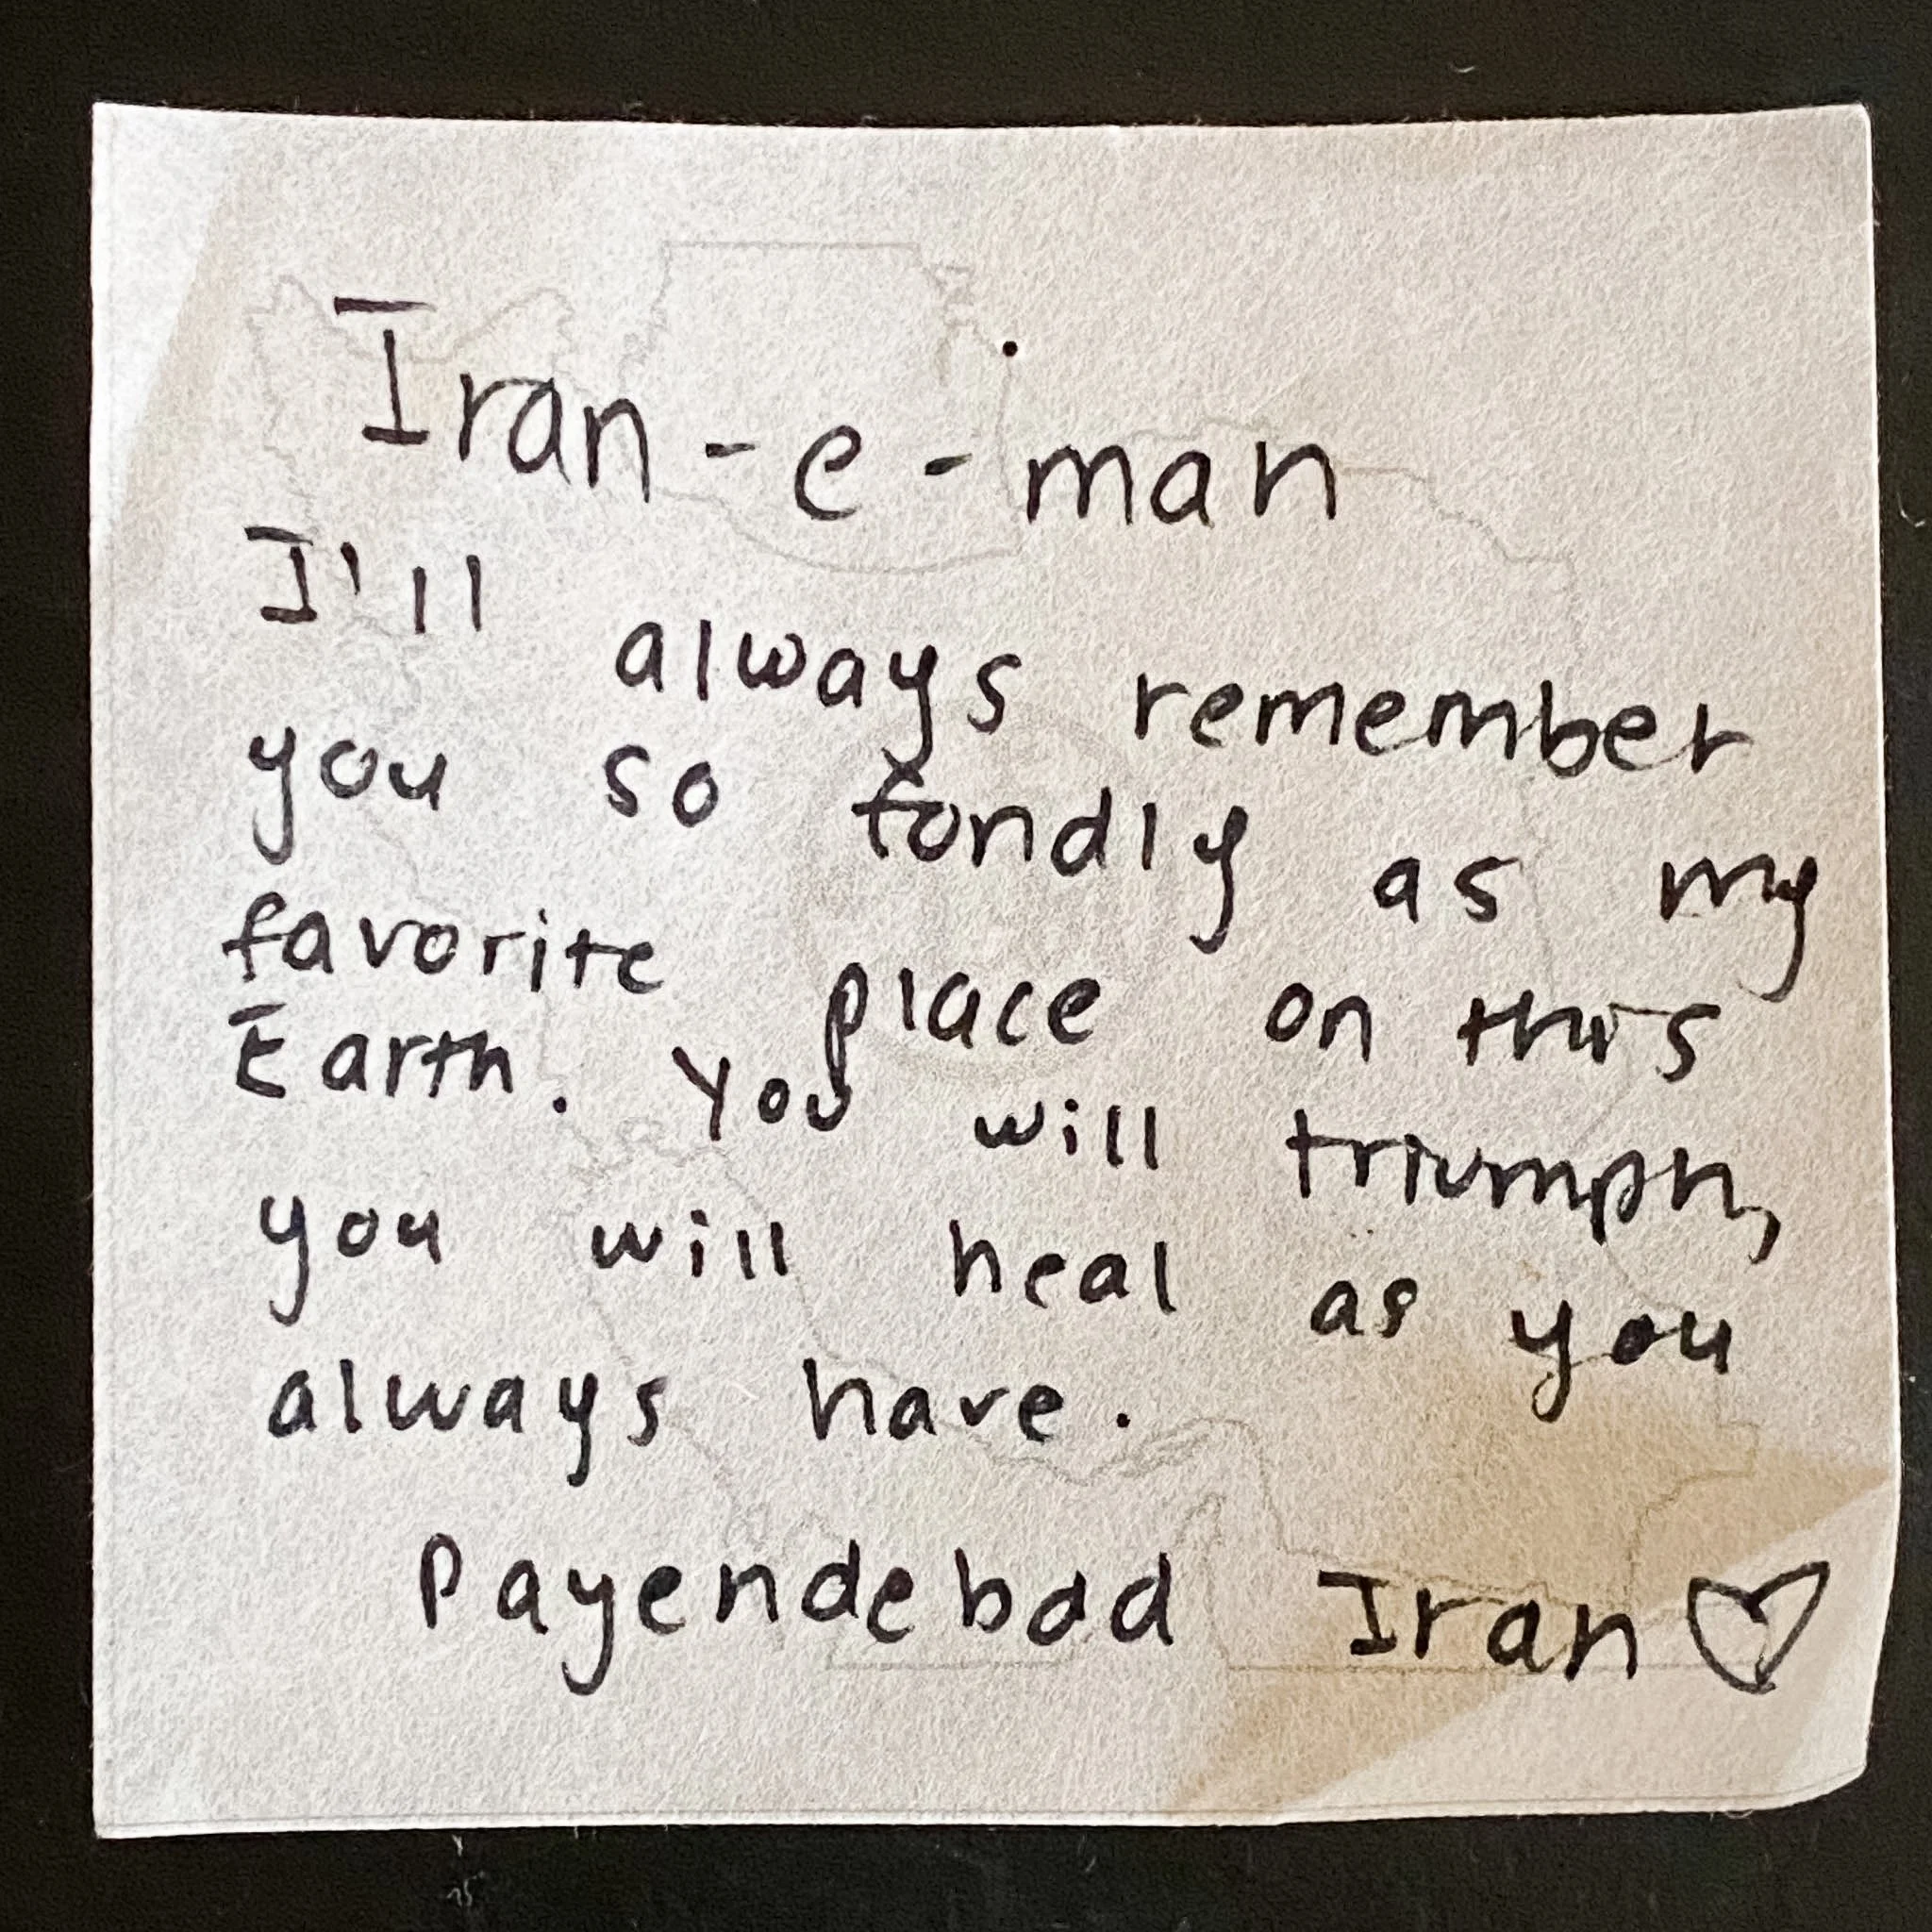 Iran-e-man
I'll always remember
you so fondly as my
favorite place on this
Earth. You will triumph,
you will heal as you
always have.
Payendebad Iran♡